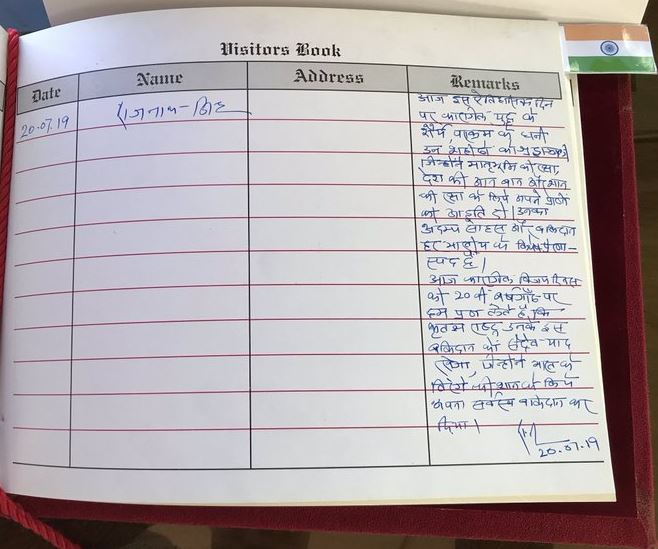 Visitors Book
Date Name Address Remarks
20.07.19 राजनाथ सिंह
आज इस ऐतिहासिक दिन
पर कारगिल युद्ध के
शौर्य, पराक्रम के धनी
उन शहीदों को श्रद्धांजलि
जिन्होंने मातृभूमि की रक्षा,
देश की आन बान और शान
की रक्षा के लिये अपने प्राणों
की आहुति दी। उनका
अदम्य साहस और बलिदान
हर भारतीय के लिये प्रेरणा-
स्पद है।
आज कारगिल विजय दिवस
की 20 वीं वर्षगाँठ पर
हम प्रण लेते हैं, कि
कृतज्ञ राष्ट्र उनके इस
बलिदान को सदैव याद
रखेगा, जिन्होंने भारत के
तिरंगे की शान के लिये
अपना सर्वस्व बलिदान कर
दिया।
20.07.19